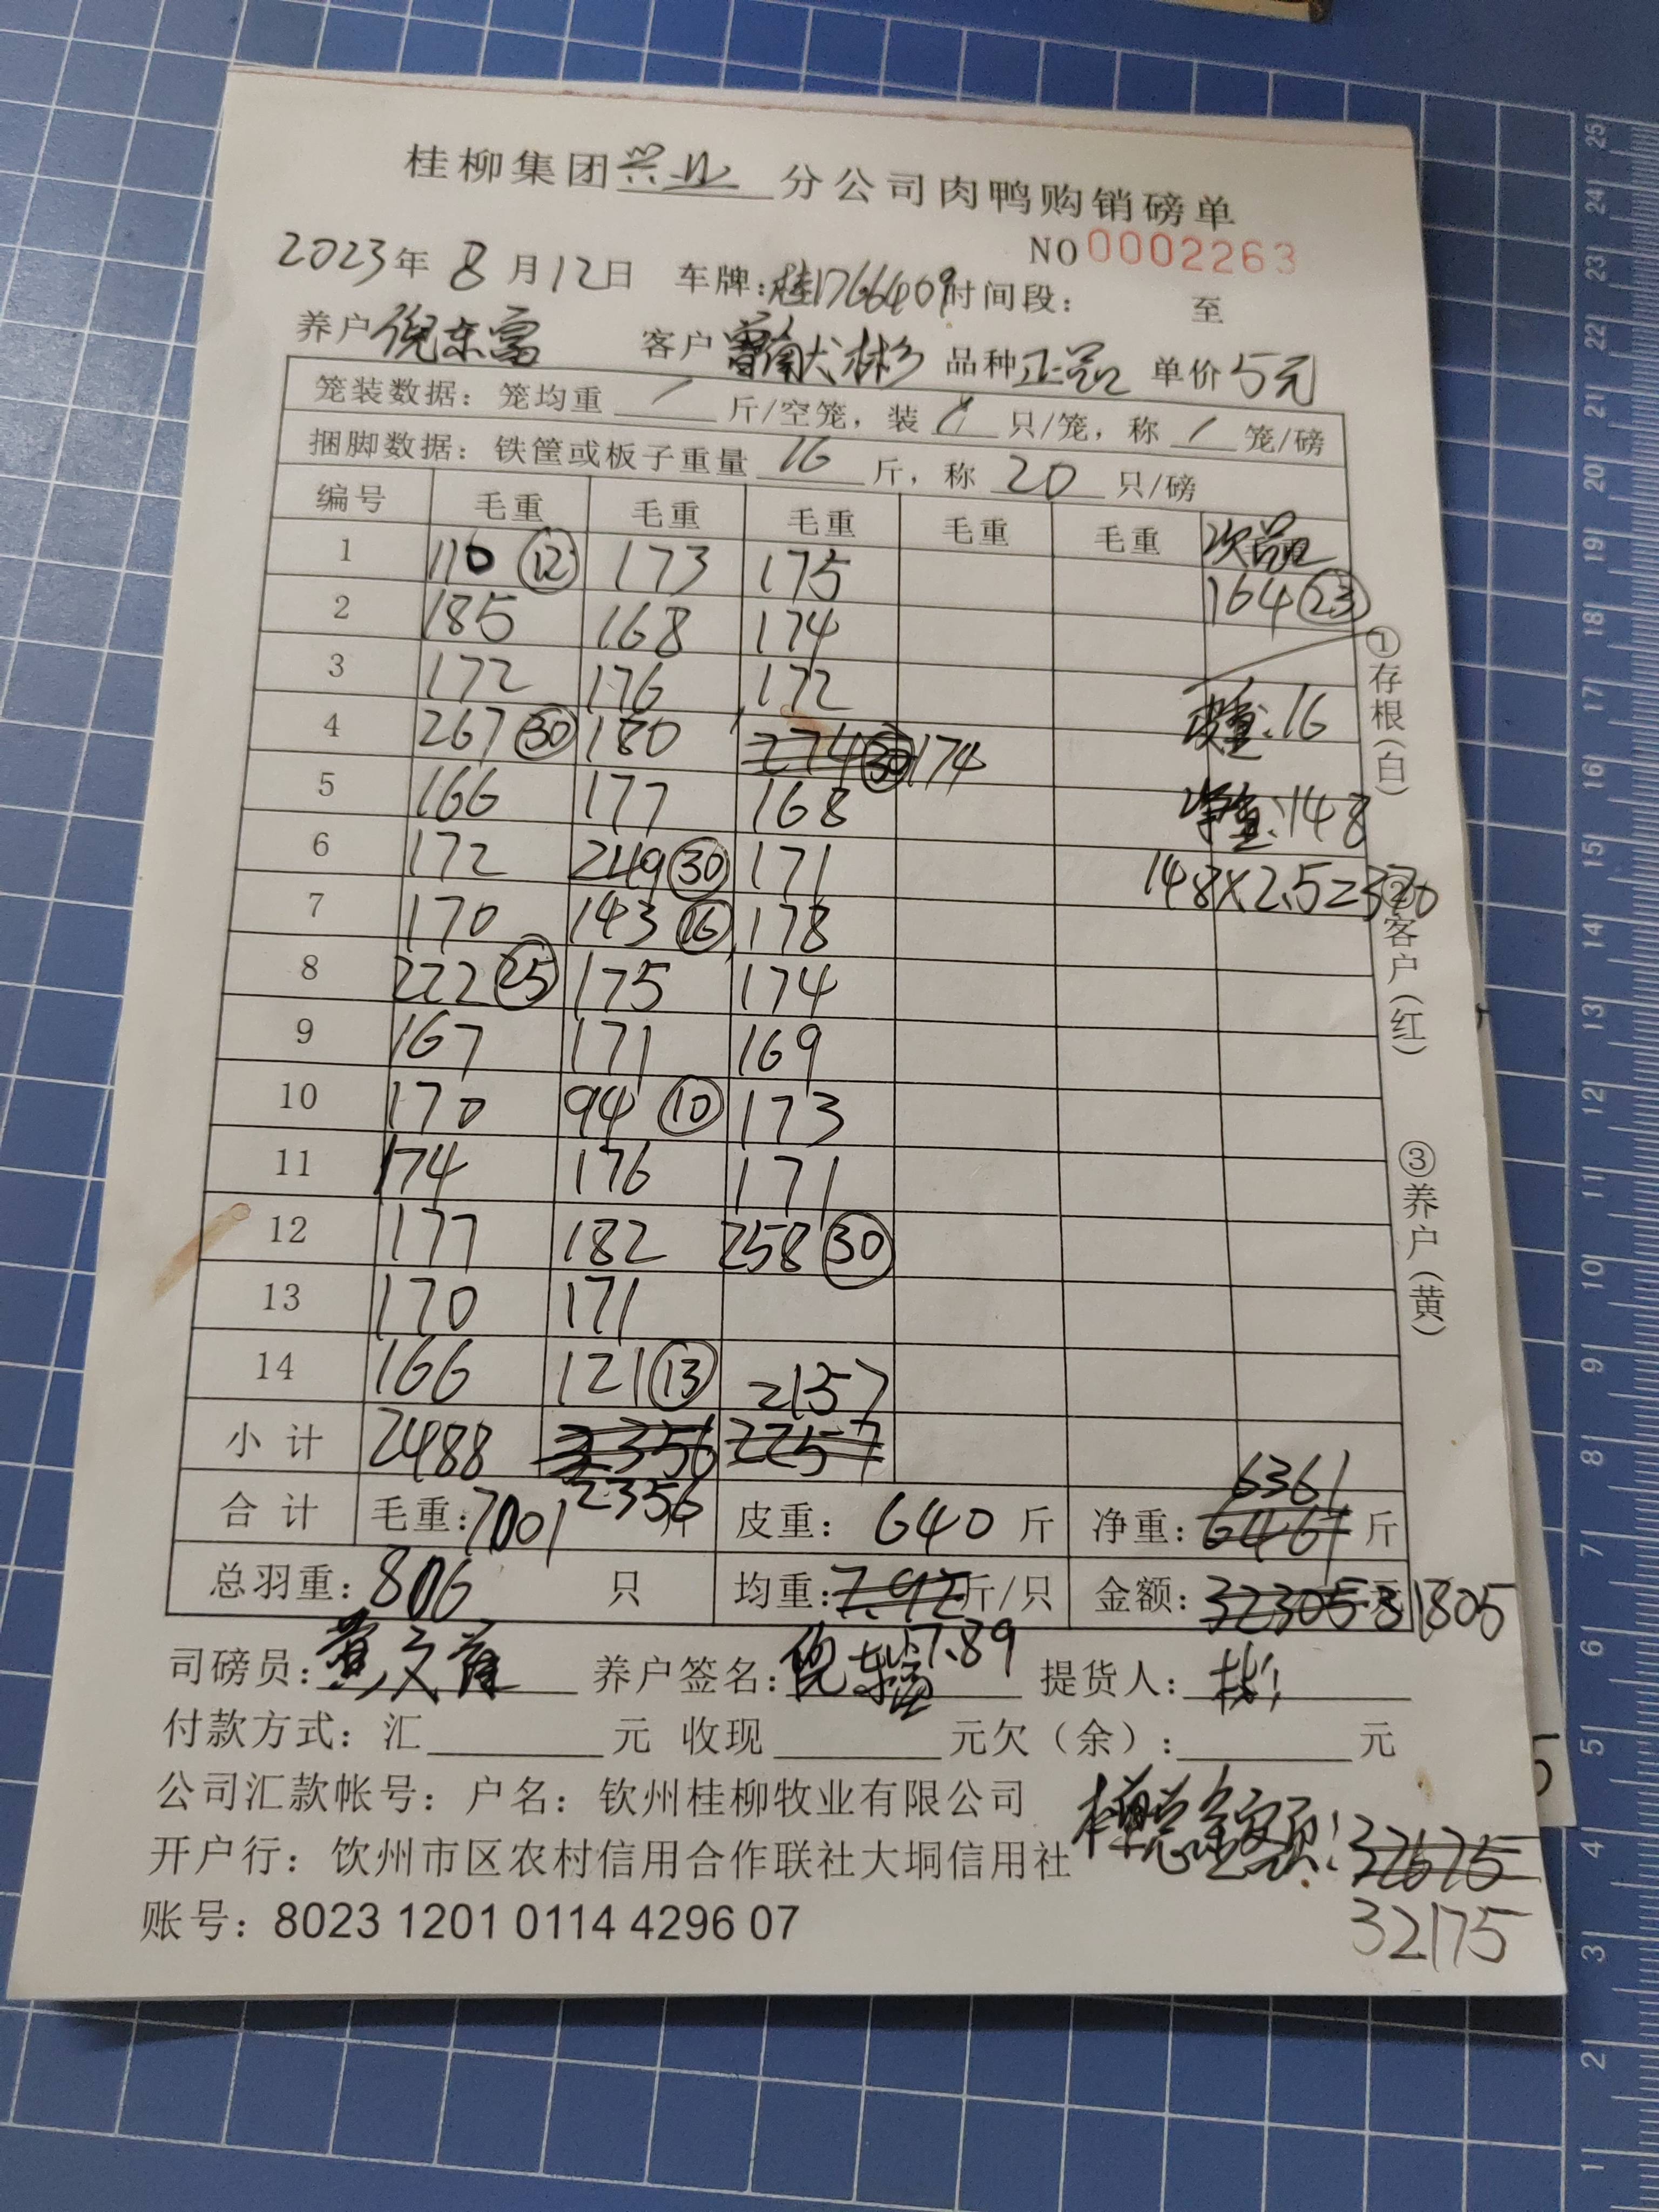 桂柳集团兴业分公司肉鸭购销磅单
NO 0002263
2023年 8月12日 车牌:桂D766409时间段: 至
养户倪东富 客户曾献彬 品种正品 单价5元
笼装数据:笼均重 / 斤/空笼,装 / 只/笼,称 / 笼/磅
捆脚数据:铁筐或板子重量 16 斤,称 20 只/磅
编号 毛重 毛重 毛重 毛重 毛重 次品
1 110 ⑫ 173 175 164 ㉓
2 185 168 174
3 172 176 172
4 267 ㉚ 180 274 ㉚ 174 皮重:16
5 166 177 168 净重:148
6 172 249 ㉚ 171 148×2.5=370
7 170 143 ⑯ 178
8 222 ㉕ 175 174
9 167 171 169
10 170 94 ⑩ 173
11 174 176 171
12 177 182 258 ㉚
13 170 171
14 166 121 ⑬ 2157
小计 2488 2356 2257
6361
合计 毛重:7001 2356 斤 皮重: 640 斤 净重: 6461 斤
总羽重:806 只 均重:7.92斤/只 金额:32305元 31805
7.89
司磅员:黄文 养户签名:倪东富 提货人:彬
付款方式:汇 元 收现 元欠(余): 元
公司汇款帐号:户名:钦州桂柳牧业有限公司
本单总金额:32675
开户行:钦州市区农村信用合作联社大垌信用社
32175
账号:8023 1201 0114 4296 07
①存根(白)
②客户(红)
③养户(黄)
25
24
23
22
21
20
19
18
17
16
15
14
13
12
11
10
9
8
7
6
5
4
3
2
1